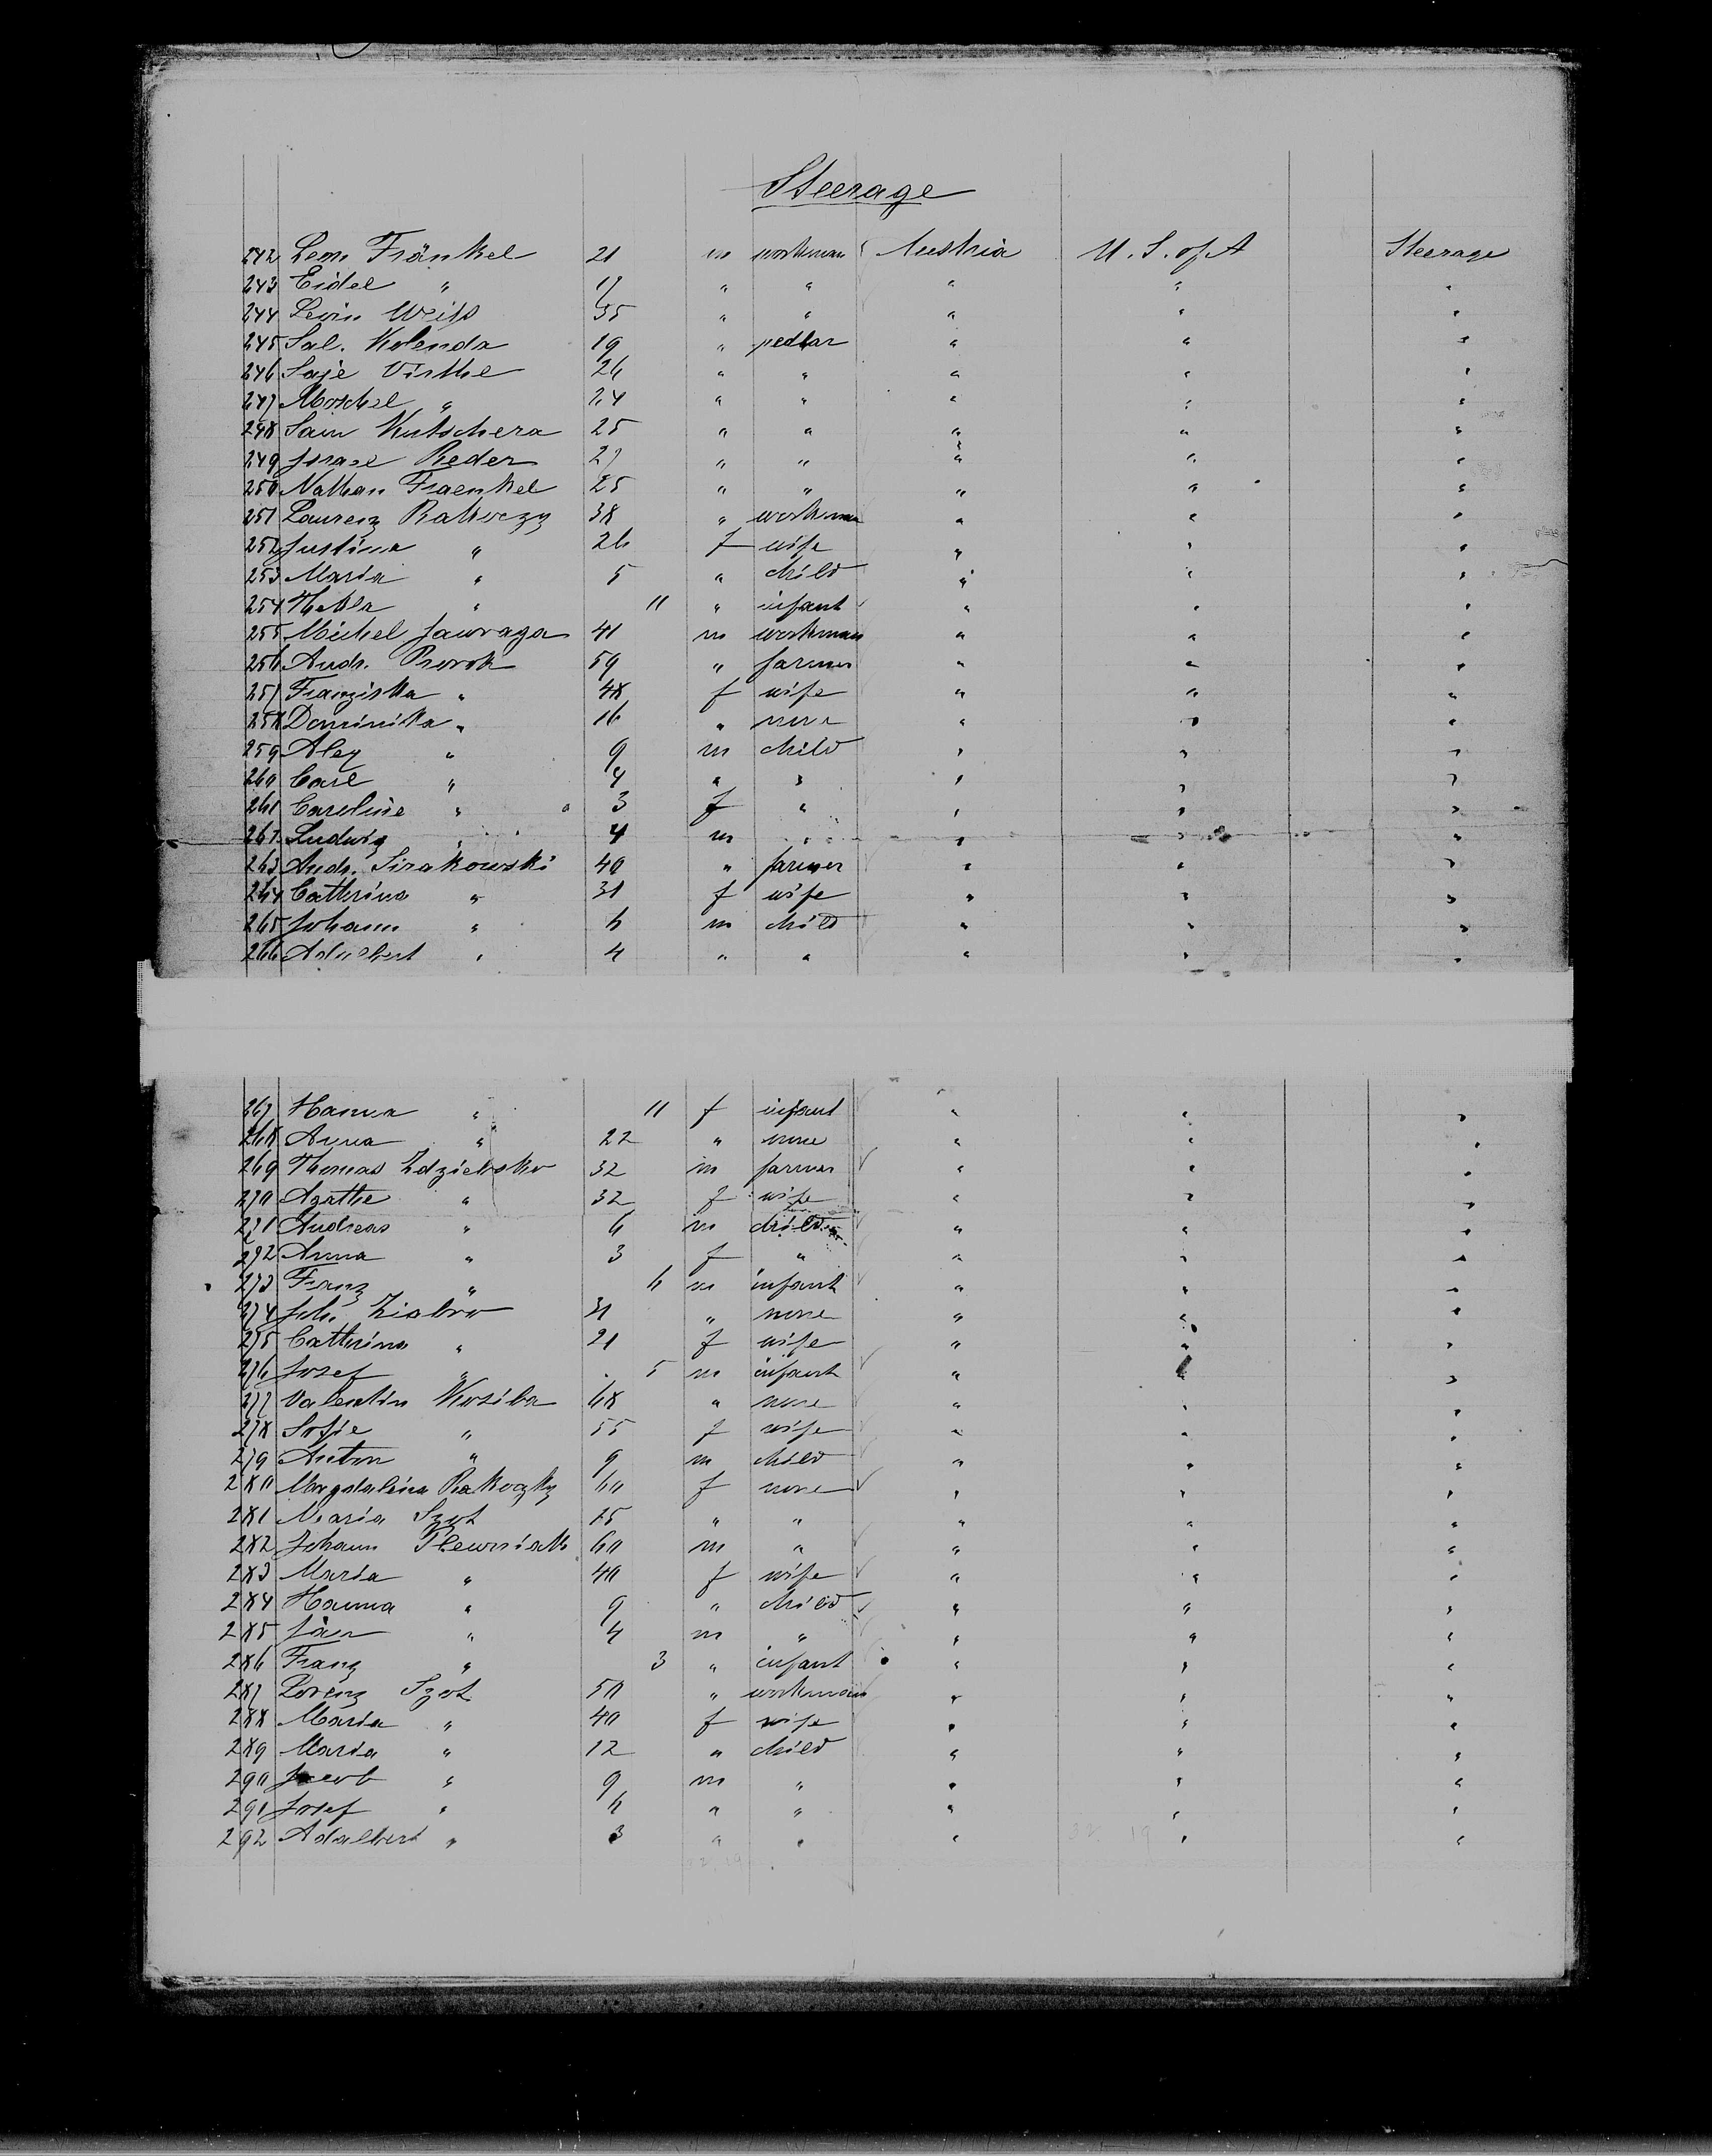 Steerage
242 Leon Fränkel 21 m workman Austria U. S. of A Steerage
243 Eidel " 17 " " " " "
244 Levin Weiss 35 " " " " "
245 Sal. Kolenda 19 " pedlar " " "
246 Saje Visthe 26 " " " " "
247 Moschel " 24 " " " " "
248 Sam Kutschera 25 " " " " "
249 Israel Reder 27 " " " " "
250 Nathan Fraenkel 25 " " " " "
251 Laurenz Rakoczy 38 " workman " " "
252 Justina " 26 f wife " " "
253 Maria " 5 " child " " "
254 Thekla " 11 " infant " " "
255 Michel Jawraga 41 m workman " " "
256 Andr. Prorok 59 " farmer " " "
257 Franziska " 48 f wife " " "
258 Dominika " 16 " none " " "
259 Alex " 9 m child " " "
260 Carl " 4 " " " " "
261 Caroline " 3 f " " " "
262 Ludwig " 4 m " " " "
263 Andr. Sirakowski 40 " farmer " " "
264 Cathrina " 31 f wife " " "
265 Johann " 6 m child " " "
266 Adalbert " 4 " " " " "
267 Hanna " 11 f infant " " "
268 Anna " 22 " none " " "
269 Thomas Zdziebsko 32 m farmer " " "
270 Agathe " 32 f wife " " "
271 Andreas " 6 m child " " "
272 Anna " 3 f " " " "
273 Franz " 6 m infant " " "
274 Joh. Ziobro 31 " none " " "
275 Cathrina " 21 f wife " " "
276 Josef " 5 m infant " " "
277 Valentin Koziba 68 " none " " "
278 Sofie " 55 f wife " " "
279 Anton " 9 m child " " "
280 Magdalena Rakoczky 60 f none " " "
281 Maria Szot 25 " " " " "
282 Johann Plewniak 60 m " " " "
283 Maria " 40 f wife " " "
284 Hanna " 9 " child " " "
285 Jan " 4 m " " " "
286 Franz " 3 " infant " " "
287 Lorenz Szot 50 " workman " " "
288 Maria " 40 f wife " " "
289 Maria " 12 " child " " "
290 Jacob " 9 m " " " "
291 Josef " 6 " " " " "
292 Adalbert " 3 " " " " "